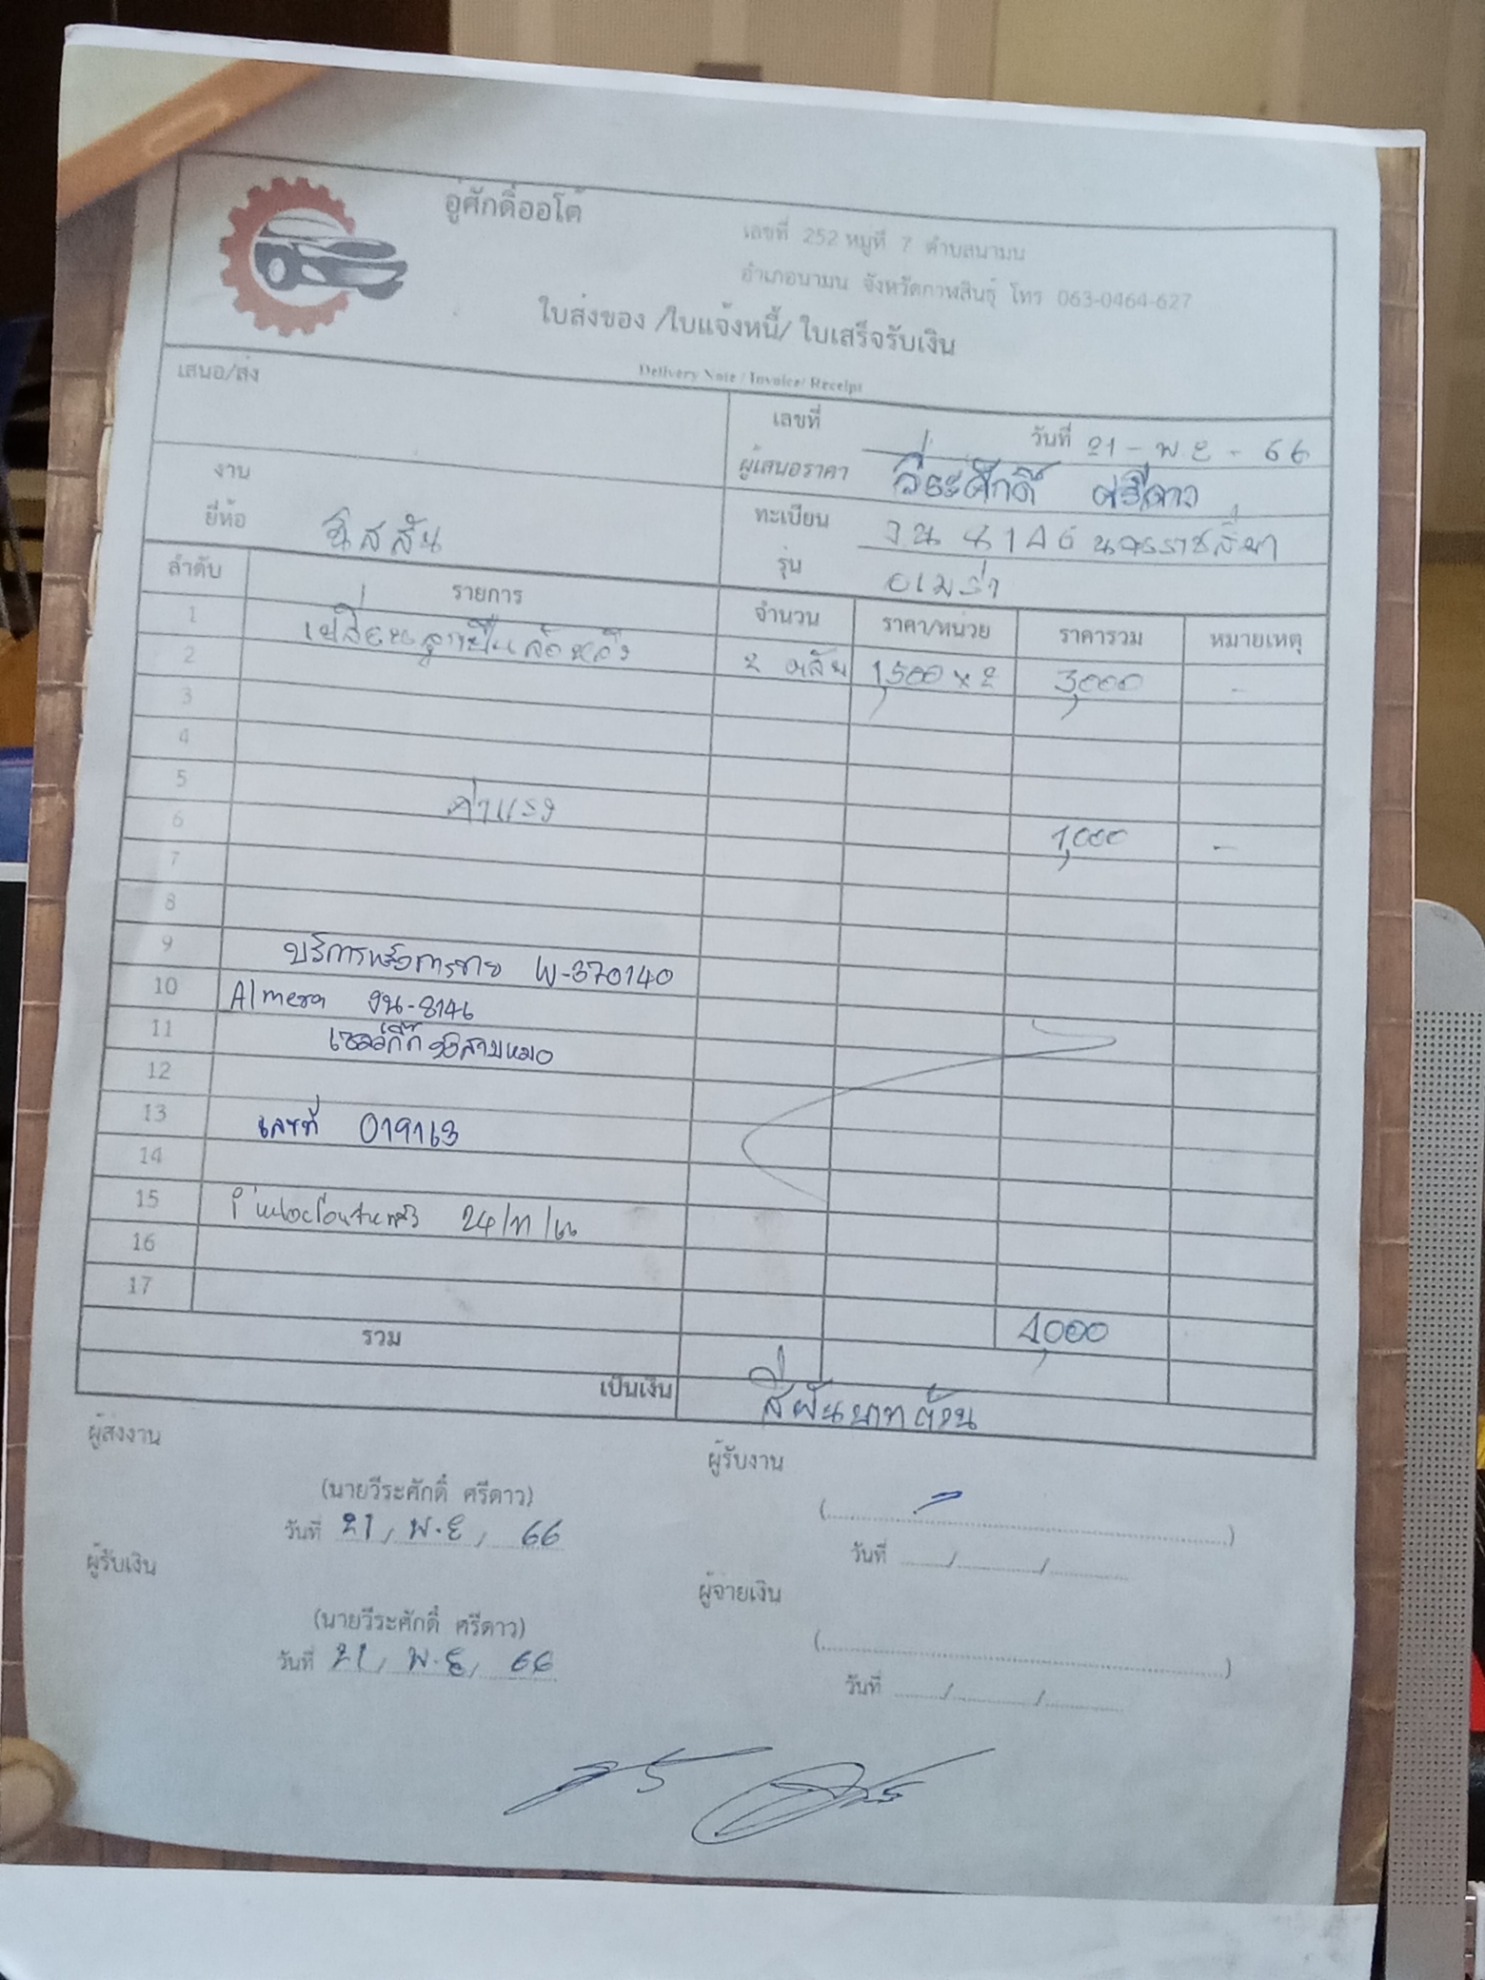 อู่ศักดิ์ออโต้
เลขที่ 252 หมู่ที่ 7 ตำบลนามน
อำเภอนามน จังหวัดกาฬสินธุ์ โทร 063-0464-627
ใบส่งของ /ใบแจ้งหนี้/ ใบเสร็จรับเงิน
Delivery Note / Invoice/ Receipt
เสนอ/ส่ง
เลขที่ วันที่ 21 - พ.ย - 66
ผู้เสนอราคา วีระศักดิ์ ศรีดาว
งาน
ทะเบียน งน 8146 นครราชสีมา
ยี่ห้อ นิสสัน
รุ่น อเมร่า
ลำดับ รายการ จำนวน ราคา/หน่วย ราคารวม หมายเหตุ
1 เปลี่ยนลูกปืนล้อหลัง 2 ตลับ 1,500 x 2 3,000 -
2
3
4
5 ค่าแรง 1,000 -
6
7
8
9 บริการหลังการขาย W-370140
10 Almera งน-8146
11
12
13 เลขที่ 019163
14
15 24/11/66
16
17
รวม 4,000
เป็นเงิน สี่พันบาทถ้วน
ผู้ส่งงาน ผู้รับงาน
(นายวีระศักดิ์ ศรีดาว) (....................)
วันที่ 21 / พ.ย / 66 วันที่ ......../............/............
ผู้รับเงิน ผู้จ่ายเงิน
(นายวีระศักดิ์ ศรีดาว) (....................)
วันที่ 21 / พ.ย / 66 วันที่ ......../............/............